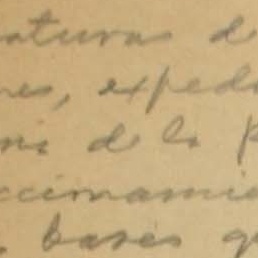 aturas d
nes, exped
ni de la p
ccimamie
bases q